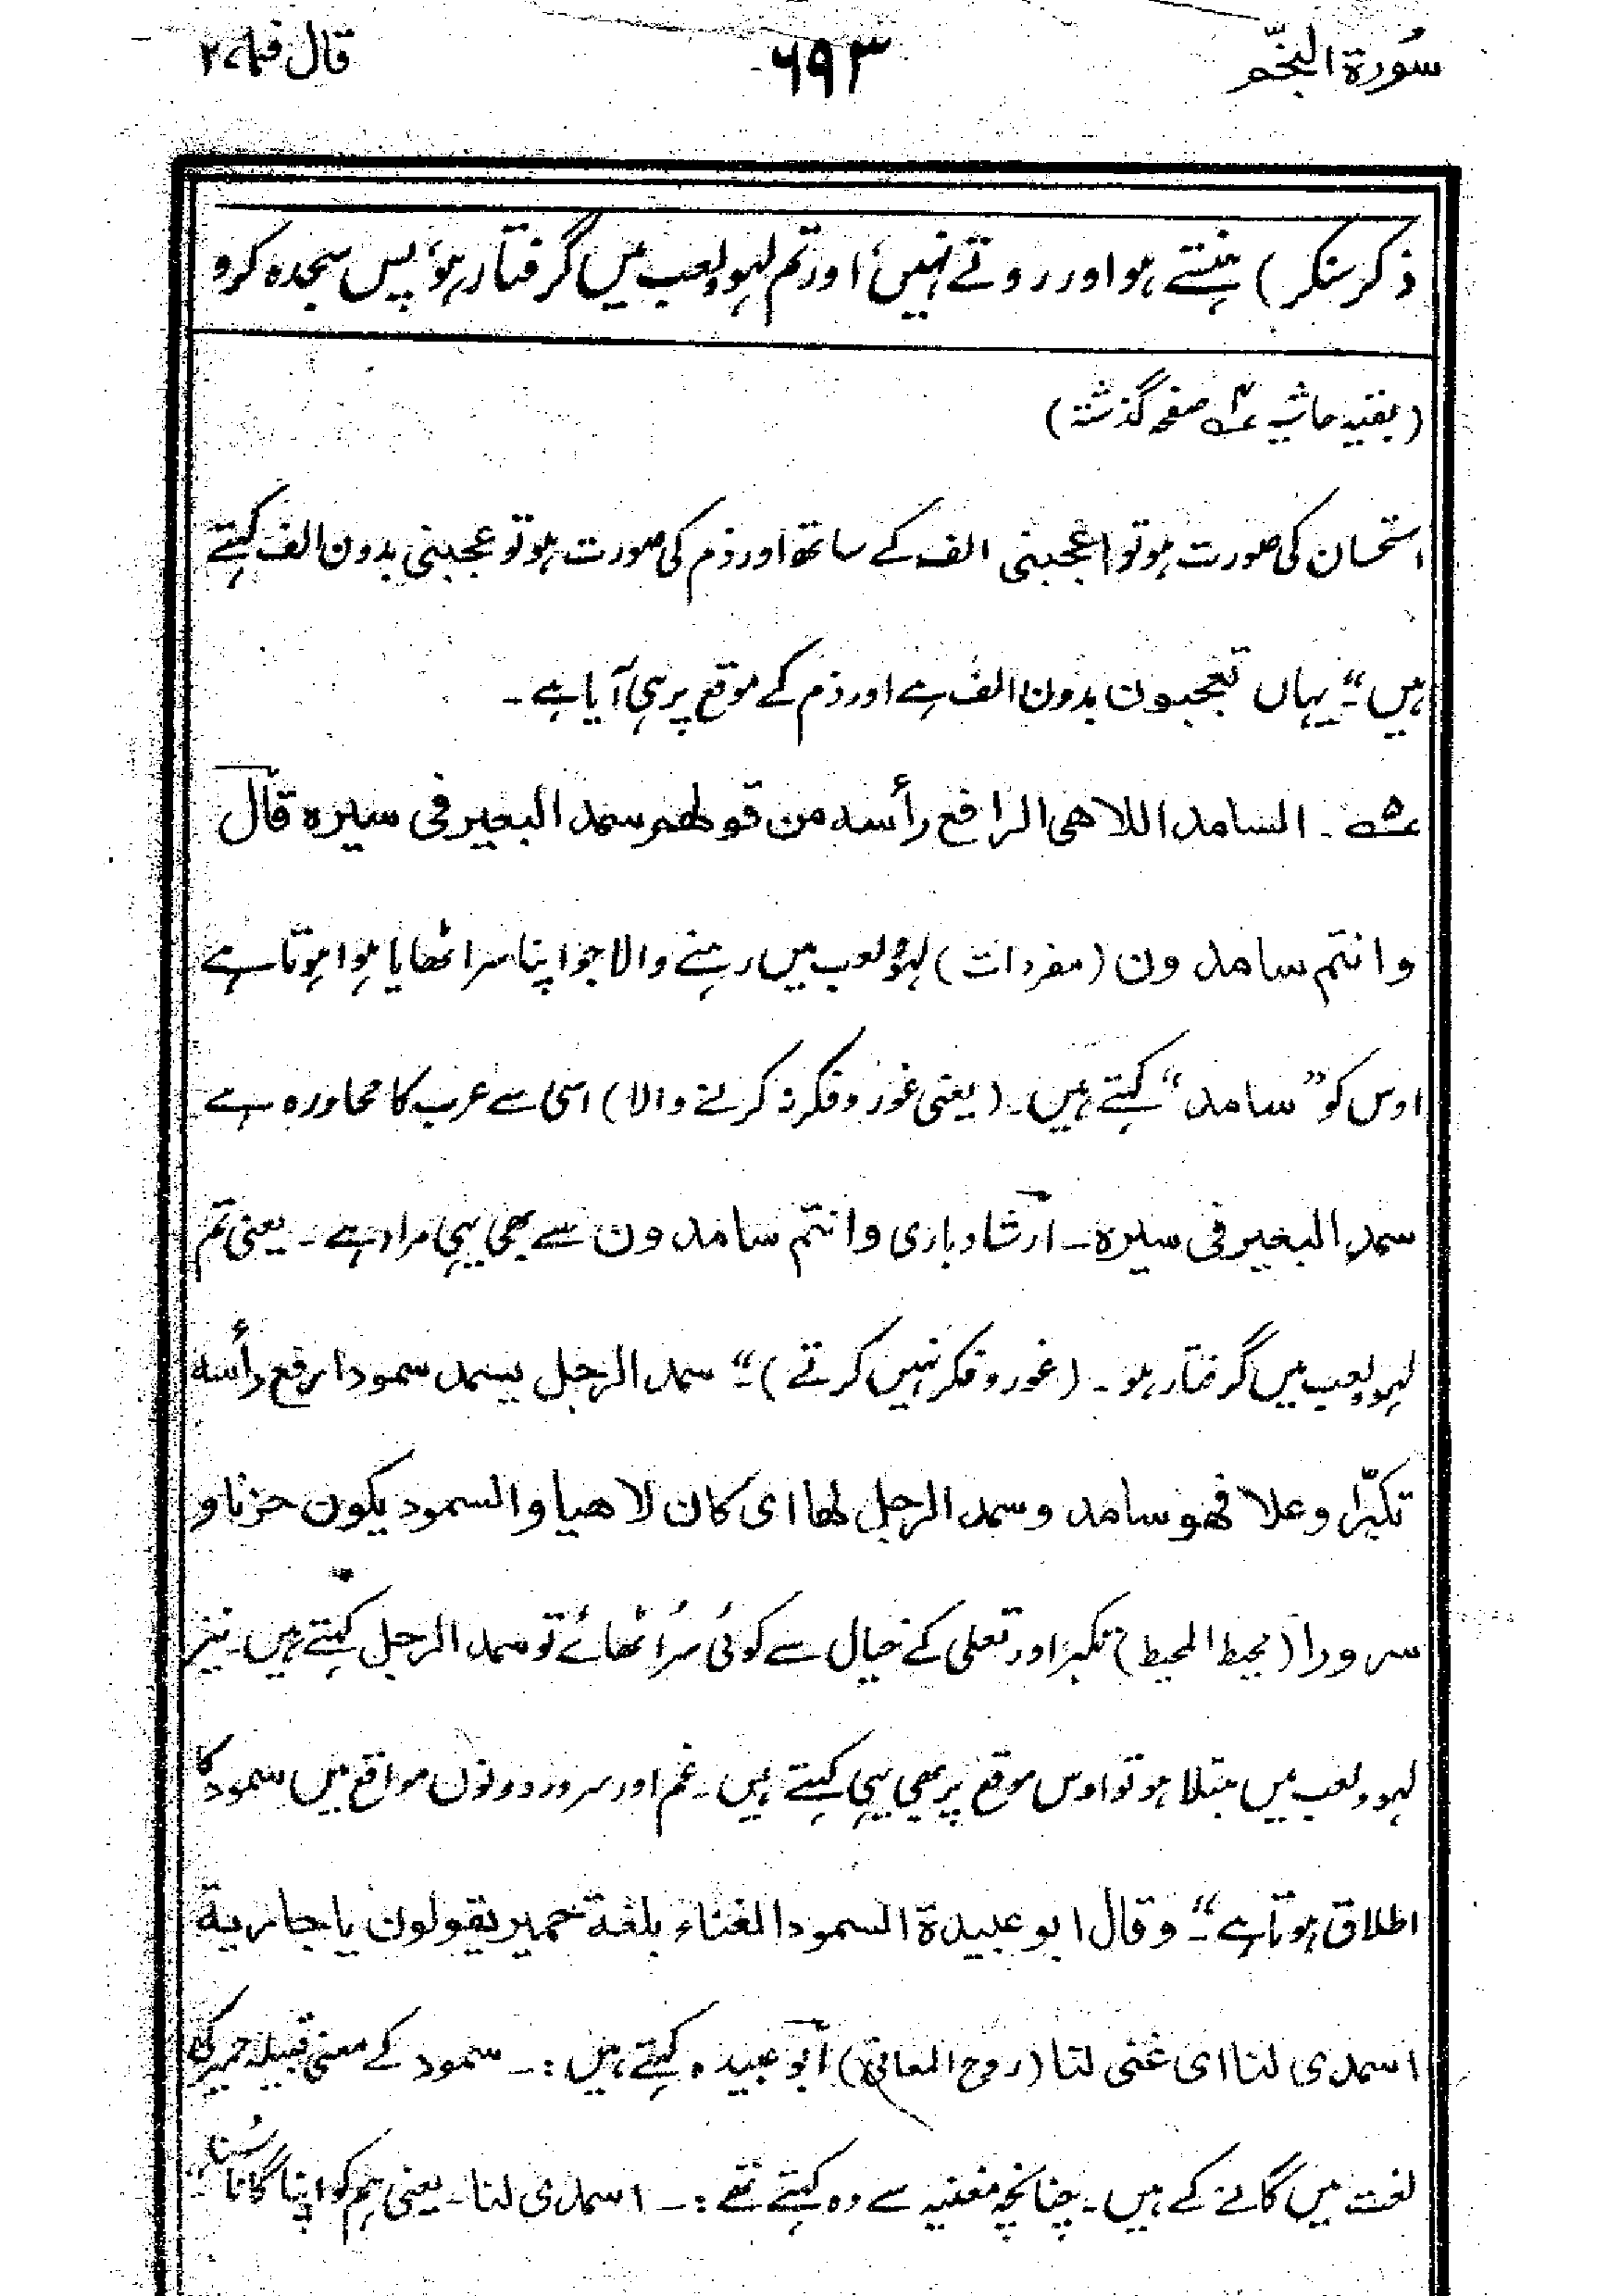 سُورة النجّم ٦٩٣ قال فما ٢٧
ذکر سنکر) ہنستے ہو اور روتے نہیں، اور تم لہو لعب میں گرفتار ہو، پس سجدہ کرو
(بقیہ حاشیہ ۴ صفحہ گذشتہ)
استحسان کی صورت ہو تو اعجبنی الف کے ساتھ اور ذم کی صورت ہو تو عجبنی بدون الف کہتے
ہیں"۔ یہاں تعجبون بدون الف ہے اور ذم کے موقع پر ہی آیا ہے۔
۵۔ السامد اللاهی الرافع رأسه من قولهم سمد البعیر فی سیره قال
وانتم سامدون (مفردات) لہو لعب میں رہنے والا جو اپنا سر اٹھایا ہوا ہوتا ہے
اوس کو "سامد" کہتے ہیں۔ (یعنی غور و فکر نہ کرنے والا) اسی سے عرب کا محاورہ ہے
سمد البعیر فی سیرہ۔ ارشاد باری وانتم سامدون سے بھی یہی مراد ہے۔ یعنی تم
لہو لعب میں گرفتار ہو۔ (غور و فکر نہیں کرتے)"۔ سمد الرجل یسمد سمودا رفع رأسه
تکبّرا وعلا فهو سامد وسمد الرجل لها ای کان لاهیا والسمود یکون حزنا و
سرورا (محیط المحیط) تکبر اور تعلی کے خیال سے کوئی سر اُٹھائے تو سمد الرجل کہتے ہیں۔ نیز
لہو ولعب میں مبتلا ہو تو اوس موقع پر بھی یہی کہتے ہیں۔ غم اور سرور دونوں مواقع میں سمود کا
اطلاق ہوتا ہے"۔ وقال ابو عبیدة السمود الغناء بلغة حمیر یقولون یا جاریة
اسمدی لنا ای غنی لنا (روح المعانی) ابو عبیدہ کہتے ہیں :۔ سمود کے معنی قبیلہ حمیر کی
لغت میں گانے کے ہیں۔ چنانچہ مغنیہ سے وہ کہتے تھے :۔ اسمدی لنا۔ یعنی ہم کو اپنا گانا سُنا"